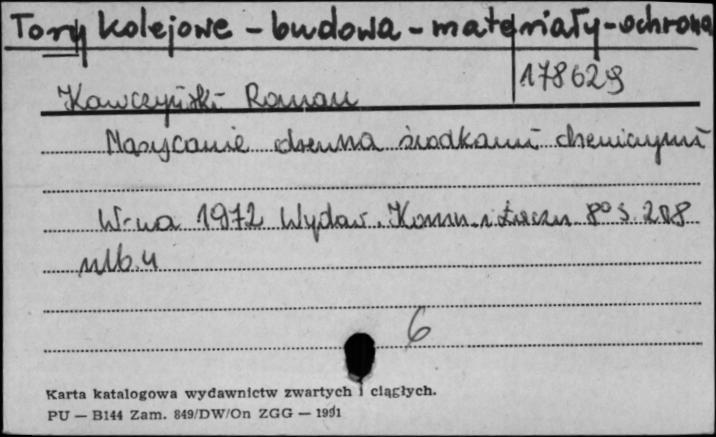 Tory kolejowe - budowa - materiały - ochrona
178629
Kawczyński Roman
Nasycanie drewna środkami chemicznymi
W-wa 1972 Wydaw. Komun. i Łączn. 8° s. 208
nlb. 4
6
Karta katalogowa wydawnictw zwartych i ciągłych.
PU — B144 Zam. 849/DW/On ZGG — 1991